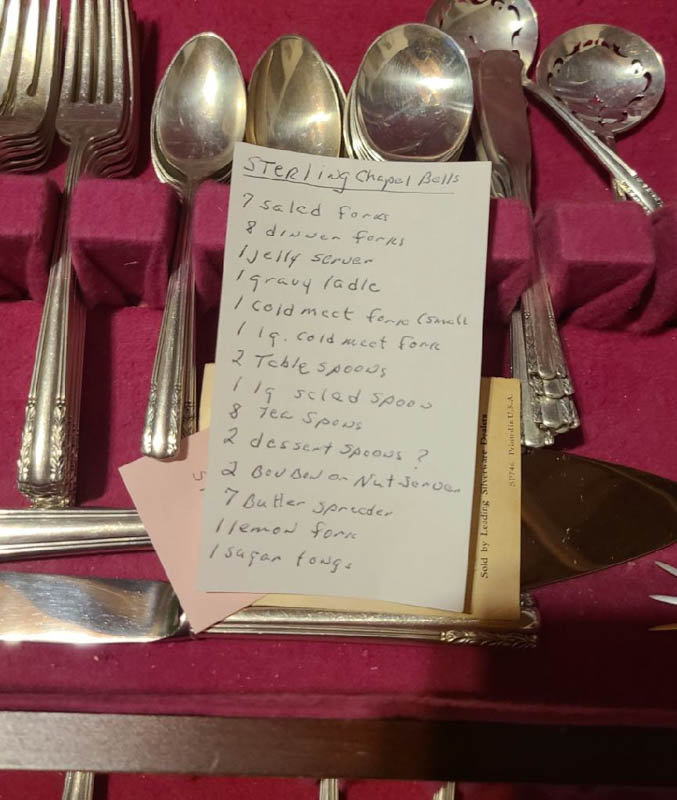 STERLING Chapel Bells
7 salad forks
8 dinner forks
1 jelly server
1 gravy ladle
1 cold meet fork (small
1 lg. cold meet fork
2 Table spoons
1 lg salad spoon
8 Tea Spons
2 dessert spoons ?
2 Bon Bon or Nut Server
7 Butter spreeder
1 lemon fork
1 sugar tongs
Sold by Leading Silverware Dealers
Printed in U.S.A.